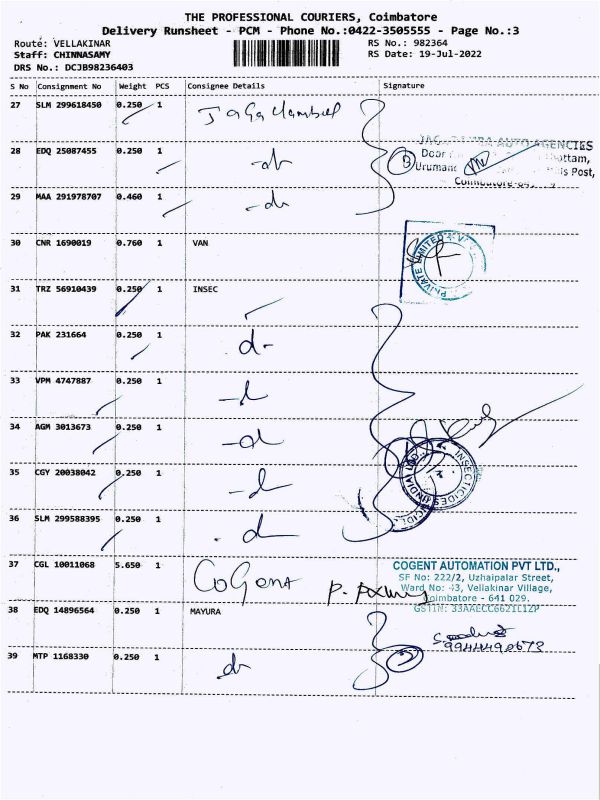 THE PROFESSIONAL COURIERS, Coimbatore
Delivery Runsheet - PCM - Phone No.:0422-3505555 - Page No.:3
Route: VELLAKINAR
RS No.: 982364
Staff: CHINNASAMY
RS Date: 19-Jul-2022
DRS No.: DCJB98236403
S No Consignment No Weight PCS Consignee Details Signature
27 SLM 299618450 0.250 1
28 EDQ 25087455 0.250 1 -do
AUTO AGENCIES
Door
29 MAA 291978707 0.460 1 -do
30 CNR 1690019 0.760 1 VAN
PRIVATE LIMITED
31 TRZ 56910439 0.250 1 INSEC
32 PAK 231664 0.250 1 d-
33 VPM 4747887 0.250 1 -d
34 AGM 3013673 0.250 1 -d
35 CGY 20038042 0.250 1 -d
INSECTICIDES (INDIA)
36 SLM 299588395 0.250 1 d
37 CGL 10011068 5.650 1 CoGent
COGENT AUTOMATION PVT LTD.,
SF No: 222/2, Uzhaipalar Street,
Ward No: 43, Vellakinar Village,
Coimbatore - 641 029.
38 EDQ 14896564 0.250 1 MAYURA
39 MTP 1168330 0.250 1 do